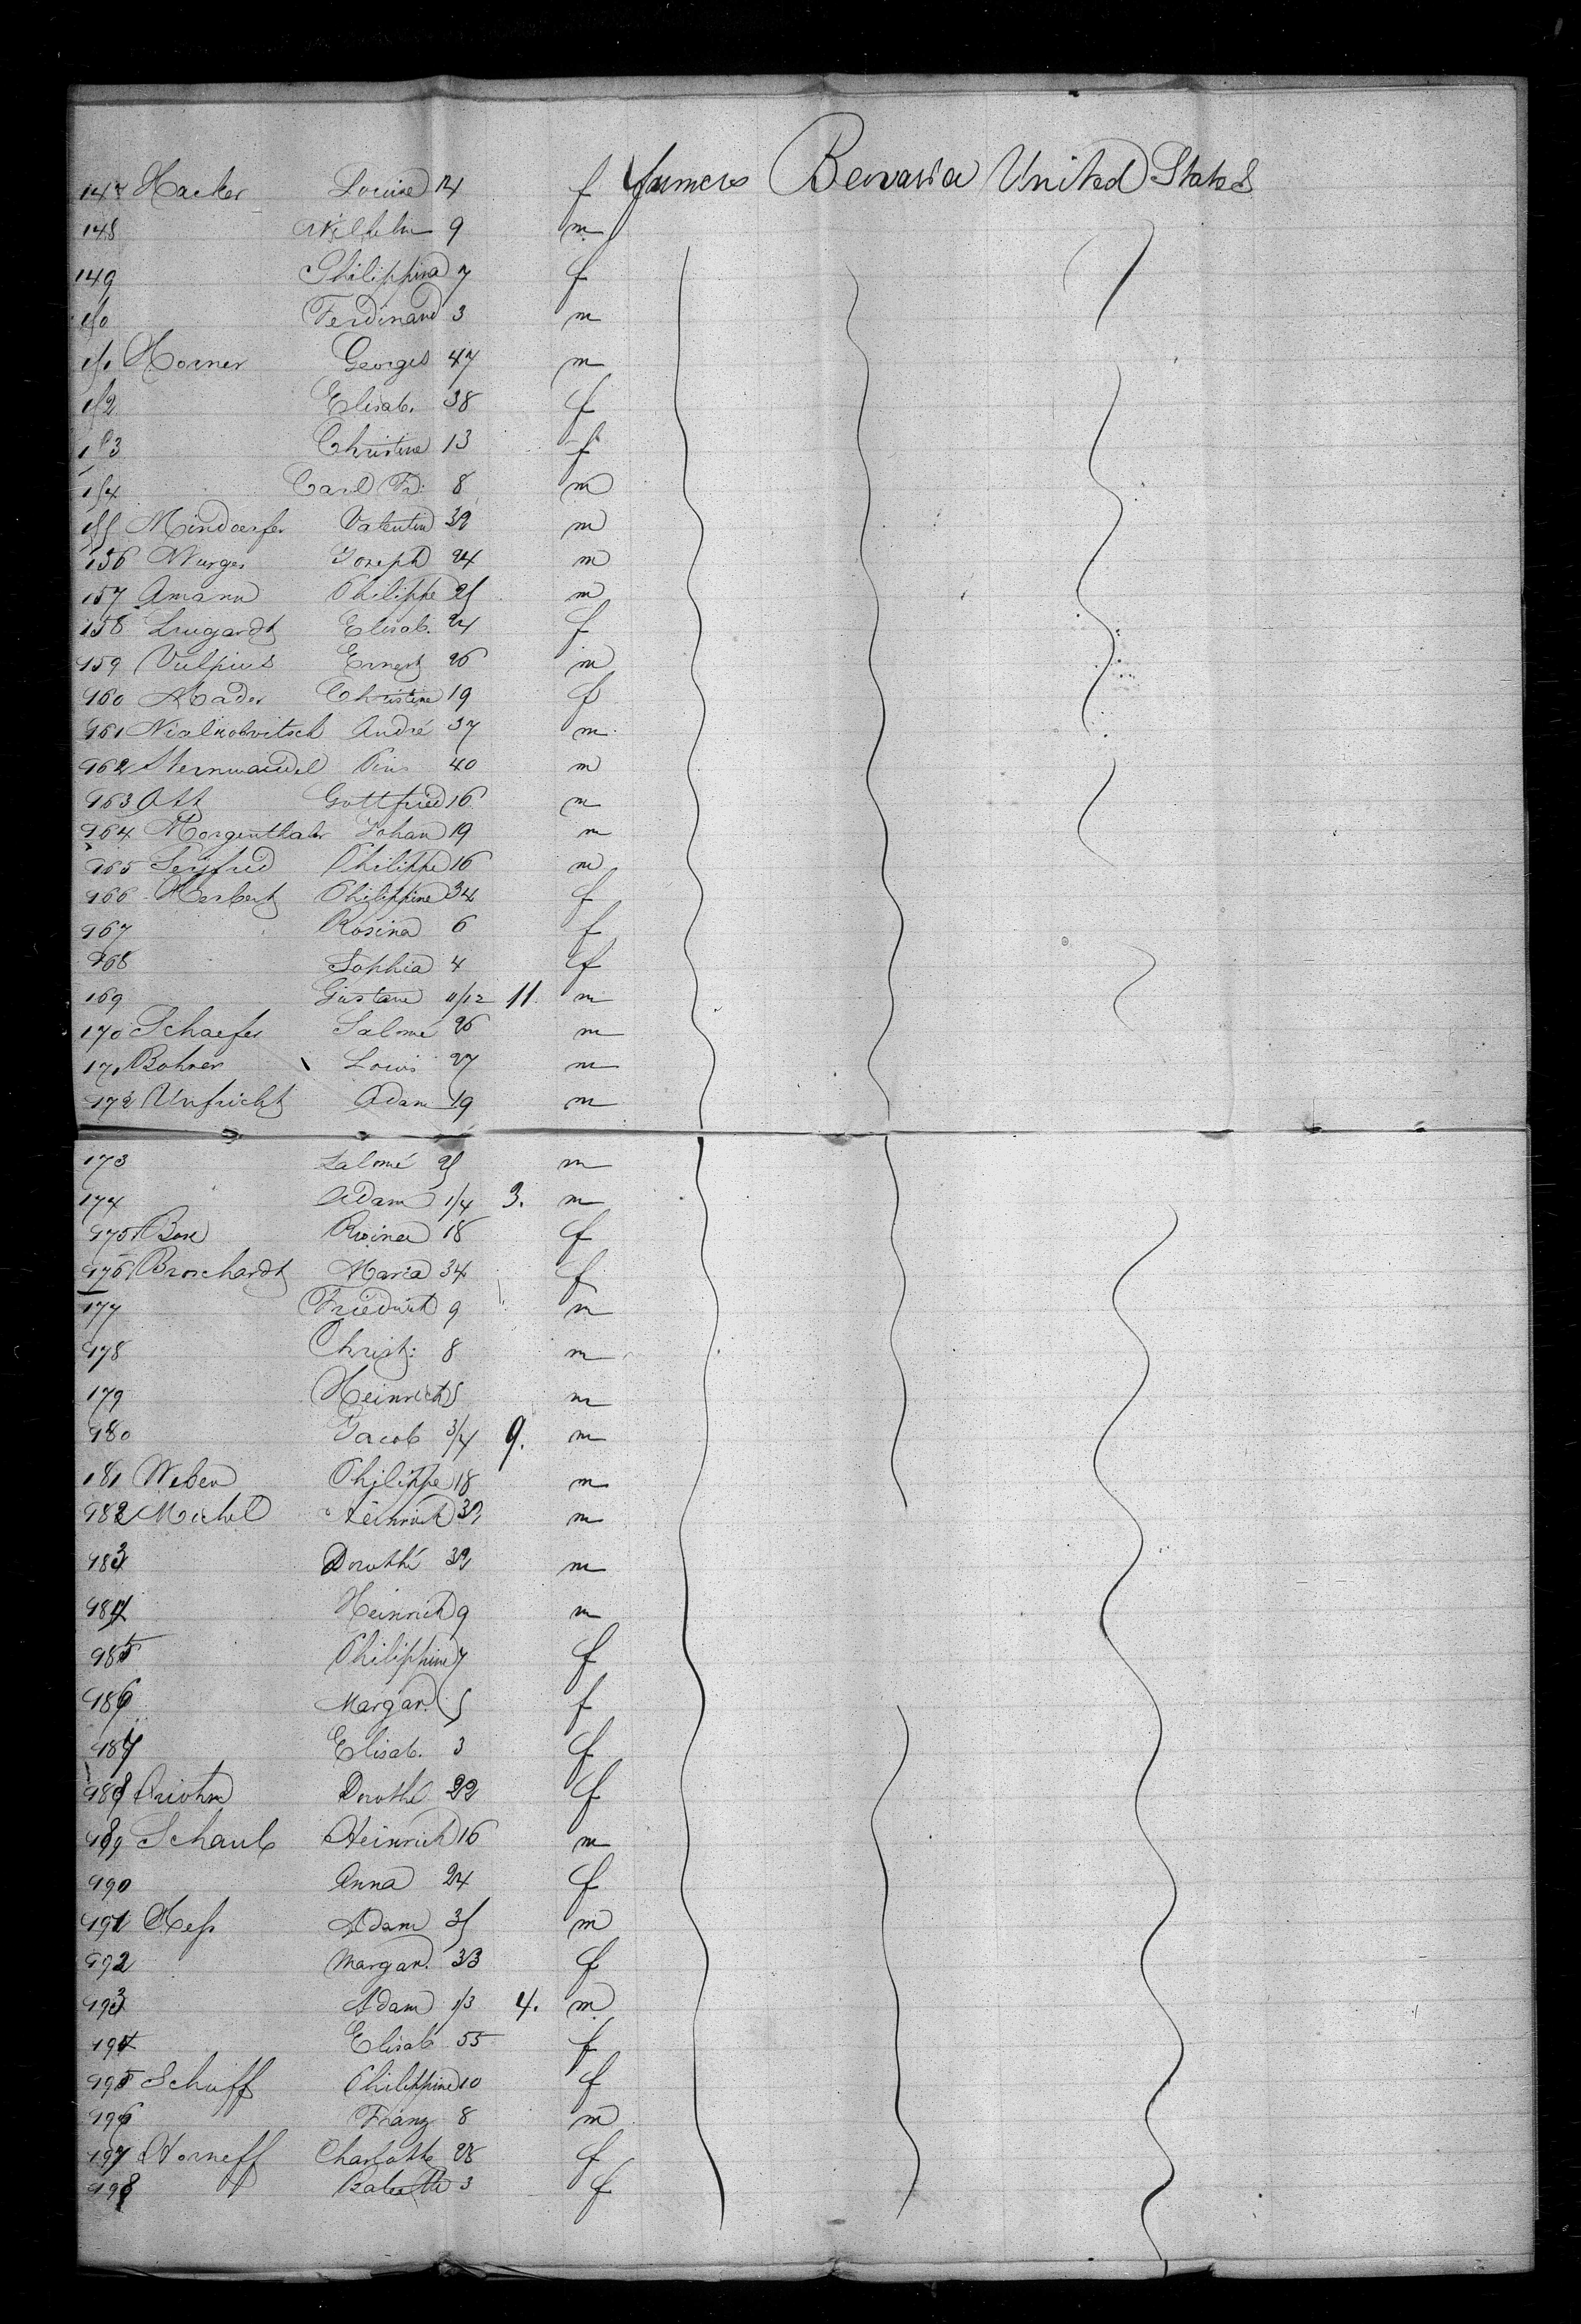 147 Hacker Louise 14 f farmers Bavaria United States
148 Wilhelm 9 m
149 Philippina 7 f
150 Ferdinand 3 m
151 Horner Georges 47 m
152 Elisab. 38 f
153 Christine 13 f
154 Carl Fr: 8 m
155 Mindoerfer Valentin 32 m
156 Joseph 24 m
157 Amann Philippe 25 m
158 Elisab. 24 f
159 Vulpius Ernest 26 m
160 Mader Christine 19 f
161 André 37 m
162 Pius 40 m
163 Ott Gottfried 16 m
164 Morgenthaler Johan 19 m
165 Seyfried Philippe 16 m
166 Herbert Philippine 34 f
167 Rosina 6 f
168 Sophia 4 f
169 Gustave 11/12 11. m
170 Schaefer Salomé 26 m
171 Bohrer Louis 27 m
172 Unfricht Adam 19 m
173 Salomé 25 m
174 Adam 1/4 3. m
175 Rosina 18 f
176 Maria 34 f
177 Friedrich 9 m
178 Christ: 8 m
179 Heinrich 5 m
180 Jacob 3/4 9. m
181 Weber Philippe 18 m
182 Michel Heinrich 32 m
183 Dorothé 32 m
184 Heinrich 9 m
185 Philippine 7 f
186 Margar. 5 f
187 Elisab. 3 f
188 Dorothé 22 f
189 Schaub Heinrich 16 m
190 Anna 24 f
191 Heſs Adam 35 m
192 Margar. 33 f
193 Adam 1/3 4. m
194 Elisab 55 f
195 Schuff Philippine 10 f
196 Franz 8 m
197 Horneff Charlotte 28 f
198 Babette 3 f